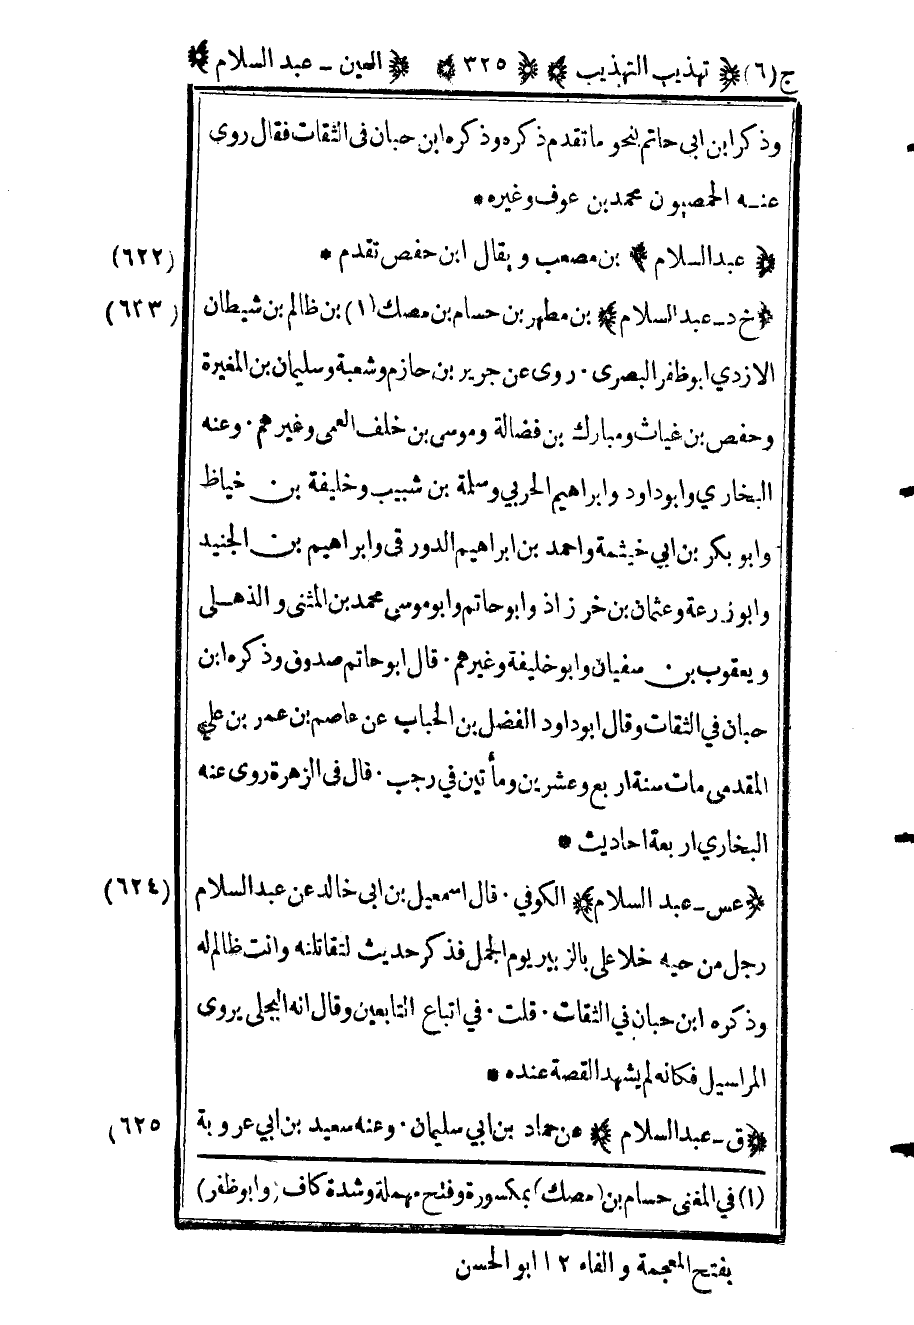 ج(٦) ﴿ تهذيب التهذيب ﴾ ﴿ ٣٢٥ ﴾ ﴿ العين ـ عبد السلام ﴾
وذكر ابن ابى حاتم نحو ما تقدم ذكره وذكره ابن حبان فى الثقات فقال روى
عنه الحمصيون محمد بن عوف وغيره *
﴿ عبدالسلام ﴾ بن مصعب ويقال ابن حفص تقدم * (٦٢٢)
﴿خ د ـ عبدالسلام﴾ بن مطهر بن حسام بن مصك (١) بن ظالم بن شيطان (٦٢٣)
الازدي ابوظفر البصرى · روى عن جرير بن حازم وشعبة وسليمان بن المغيرة
وحفص بن غياث ومبارك بن فضالة وموسى بن خلف العمى وغيرهم · وعنه
البخاري وابوداود وابراهيم الحربي وسلمة بن شبيب وخليفة بن خياط
وابو بكر بن ابي خيثمة واحمد بن ابراهيم الدورقى وابراهيم بن الجنيد
وابوزرعة وعثمان بن خرزاذ وابوحاتم وابوموسى محمد بن المثنى والذهلى
ويعقوب بن سفيان وابوخليفة وغيرهم · قال ابوحاتم صدوق وذكره ابن
حبان في الثقات وقال ابوداود الفضل بن الحباب عن عاصم بن عمر بن علي
المقدمى مات سنة اربع وعشرين ومأتين في رجب · قال فى الزهرة روى عنه
البخاري اربعة احاديث *
﴿عس ـ عبد السلام﴾ الكوفي · قال اسمعيل بن ابى خالد عن عبدالسلام (٦٢٤)
رجل من حيه خلا علي بالزبير يوم الجمل فذكر حديث لتقاتلنه وانت ظالم له
وذكره ابن حبان في الثقات · قلت · في اتباع التابعين وقال انه البجلى يروى
المراسيل فكانه لم يشهد القصة عنده *
﴿ق ـ عبدالسلام ﴾ عن حماد بن ابي سليمان · وعنه سعيد بن ابي عروبة (٦٢٥
(١) في المغنى حسام بن (مصك) بمكسورة وفتح مهملة وشدة كاف (وابوظفر)
بفتح المعجمة والفاء ١٢ ابو الحسن